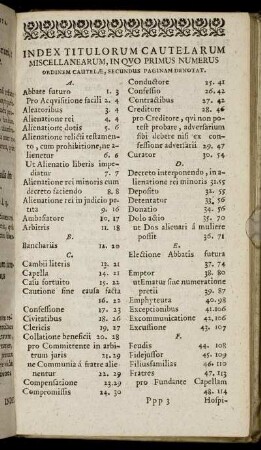 INDEX TITULORUM CAUTELARUM
MISCELLANEARUM, IN QVO PRIMUS NUMERUS
ORDINEM CAUTELÆ, SECUNDUS PAGINAM DENOTAT.
A.
Abbate futuro 1. 3
Pro Acquisitione facili 2. 4
Aleatoribus 3. 4
Alienatione rei 4. 4
Alienatione dotis 5. 6
Alienatione relicti testamento, cum prohibitione, ne
alienetur 6. 6
Ut Alienatio liberis impediatur 7. 8
Alienatione rei minoris cum
decreto faciendo 8. 8
Alienatione rei in judicio petita 9. 16
Ambasiatore 10. 17
Arbitris 11. 18
B.
Banchariis 12. 20
C.
Cambii literis 13. 21
Capella 14. 21
Casu fortuito 15. 22
Cautione sine causa facta
16. 22
Confessione 17. 23
Civitatibus 18. 26
Clericis 19. 27
Collatione beneficii 20. 28
pro Committente in arbitrum juris 21. 29
ne Communia á fratre alienentur 22. 29
Compensatione 23. 29
Compromissis 24. 30
Conductore 25. 41
Confessio 26. 42
Contractibus 27. 42
Creditore 28. 46
pro Creditore, qvi non potest probare, adversarium
sibi debere nisi ex confessione adversarii 29. 47
Curatore 30. 54
D.
Decreto interponendo, in alienatione rei minoris 31. 55
Deposito 32. 55
Detentator 33. 56
Donatio 34. 56
Dolo adjo 35. 70
ut Dos alienari á muliere
possit 36. 71
E.
Electione Abbatis futura
37. 74
Emptor 38. 80
utEmatur sine numeratione
pretii 39. 87
Emphyteuta 40. 98
Exceptionibus 41. 106
Excommunicatione 42. 106
Excussione 43. 107
F.
Feudis 44. 108
Fidejussor 45. 109
Filiusfamilias 46. 110
Fratres 47. 113
pro Fundante Capellam
48. 114
Ppp 3 Hospi-